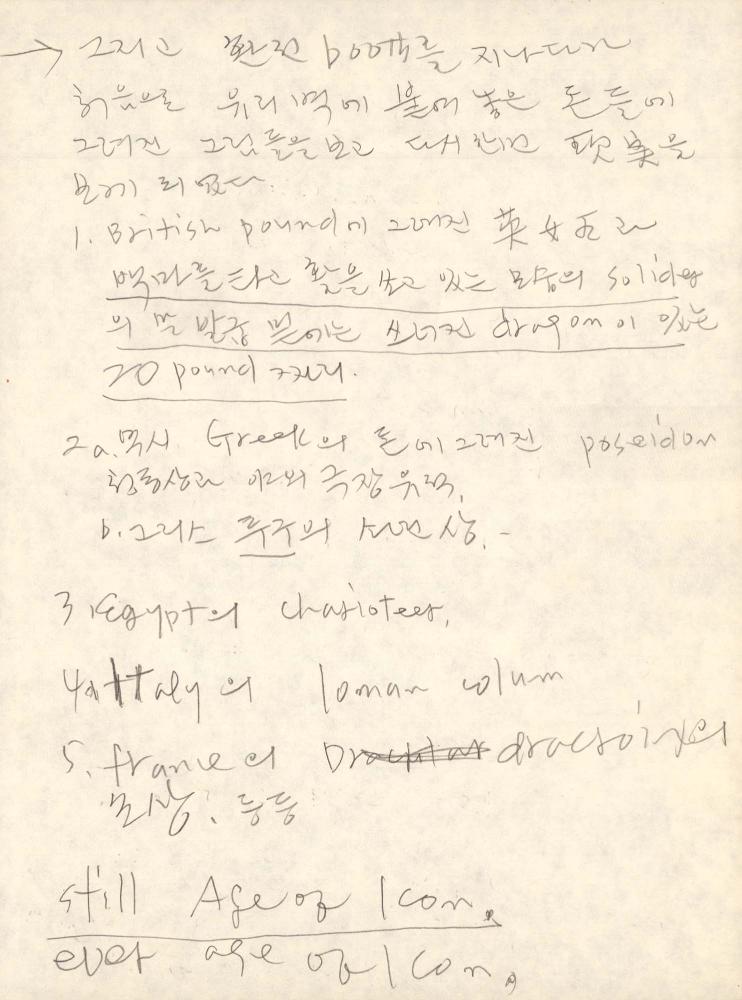 → 그리고 환전 booth를 지나다가
처음으로 유리벽에 붙여 놓은 돈들에
그려진 그림들을 보고 다시한번 現実을
보게 되었다.
1. British pound에 그려진 英女王과
백마를 타고 활을 쏘고 있는 모습의 solider
의 말 발굽 밑에는 쓰러진 dragon이 있는
20 pound 짜리.
2a. 역시 Greek의 돈에 그려진 poseidon
청동상과 야외 극장 유적,
b. 그리스 동주의 사면상. -
3. Egypt의 charioteer,
4. Italy의 loman colum
5. france의 의
모상. 등등
still Age of Icon.
ever age of Icon.